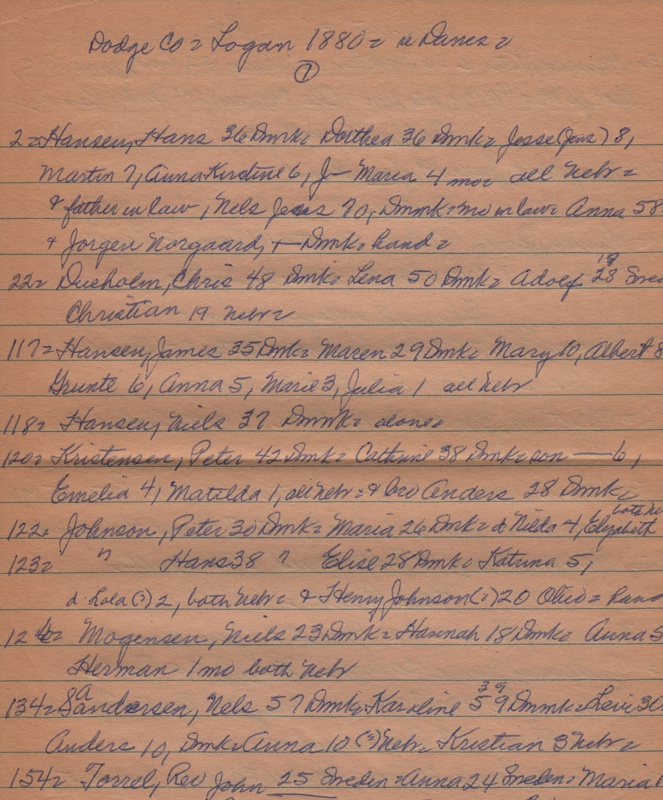 Dodge Co = Logan 1880 = Danes =
7
2 = Hansen, Hans 36 Dmk = Dorthea 36 Dmk = Jesse (Jens) 8,
Martin 7, Anna Kirstine 6, J— Maria 4 mo = all Nebr =
& father in law, Nels Jens 70, Dmmk = mo in law = Anna 58
& Jorgen Norgaard, + Dmk = hand =
22 = Dueholm, Chris 48 Dmk = Lena 50 Dmk = Adolf 28 18 Swe
Christian 19 Nebr =
117 = Hansen, James 35 Dmk = Maren 29 Dmk = Mary 10, Albert 8
Grunte 6, Anna 5, Marie 3, Julia 1 all Nebr
118 = Hansen, Niels 37 Dmmk = alone =
120 = Kristensen, Peter 42 Dmk = Cathrine 38 Dmk = son — 6,
Emelia 4, Matilda 1, all Nebr = & bro Anders 28 Dmk =
122 = Johnson, Peter 30 Dmk = Maria 26 Dmk = d Nilda 4, Elizabeth both Ne
123 = " Hans 38 " Elise 28 Dmk = Katrina 5,
d. Lola (?) 2, both Nebr = & Henry Johnson (?) 20 Ohio = hand
126 = Mogensen, Niels 23 Dmk = Hannah 18 Dmk = Anna 5
Herman 1 mo both Nebr
134 = Sandersen, Nels 57 Dmk = Karoline 59 39 Dmmk = Levi 30
Anders 10, Dmk = Anna 10 (?) Nebr = Kristian 3 Nebr =
154 = Torrel, Rev John 25 Sweden = Anna 24 Sweden = Maria